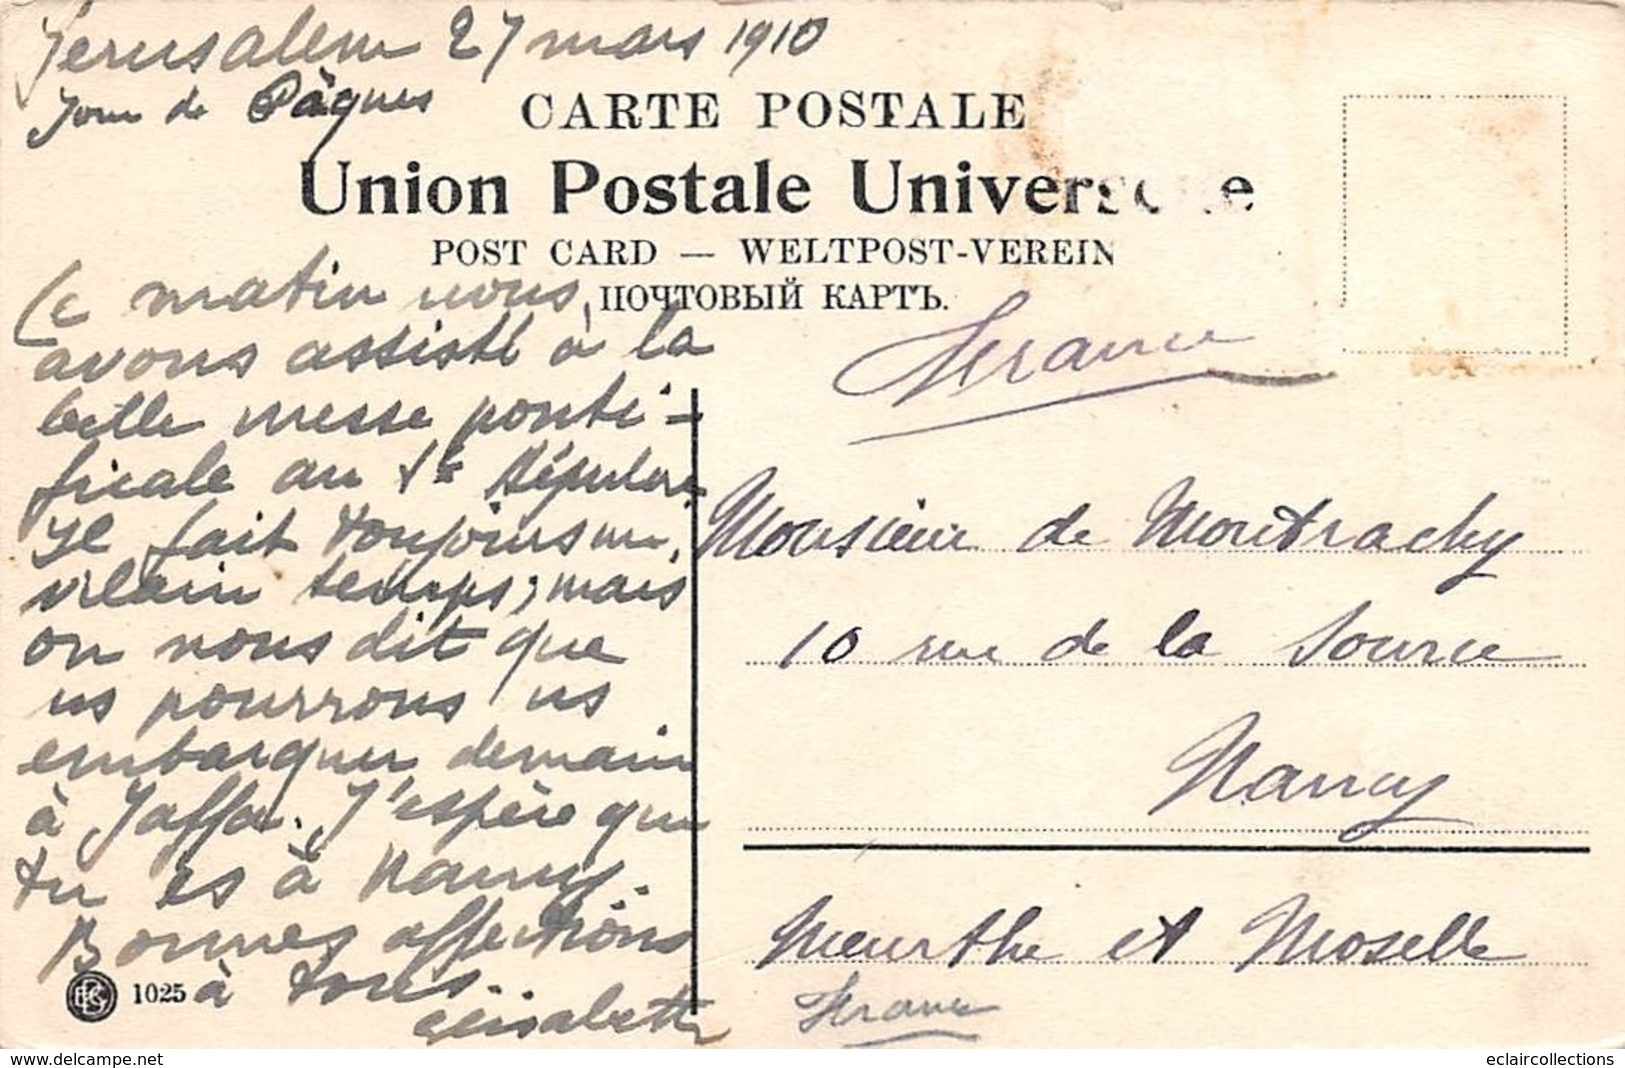 Jerusalem 27 mars 1910
Jour de Pâques
CARTE POSTALE
Union Postale Universelle
POST CARD — WELTPOST-VEREIN
ПОЧТОВЫЙ КАРТЪ.
Ce matin nous
avons assisté à la
belle messe ponti-
ficale au St Sépulcre
Il fait toujours un
vilain temps, mais
on nous dit que
ns pourrons ns
embarquer demain
à Jaffa. J'espère que
tu es à Nancy.
Bonnes affections
à tous.
Elisabeth
1025
France
Monsieur de Montrachy
10 rue de la Source
Nancy
Meurthe et Moselle
France
www.delcampe.net
eclaircollections